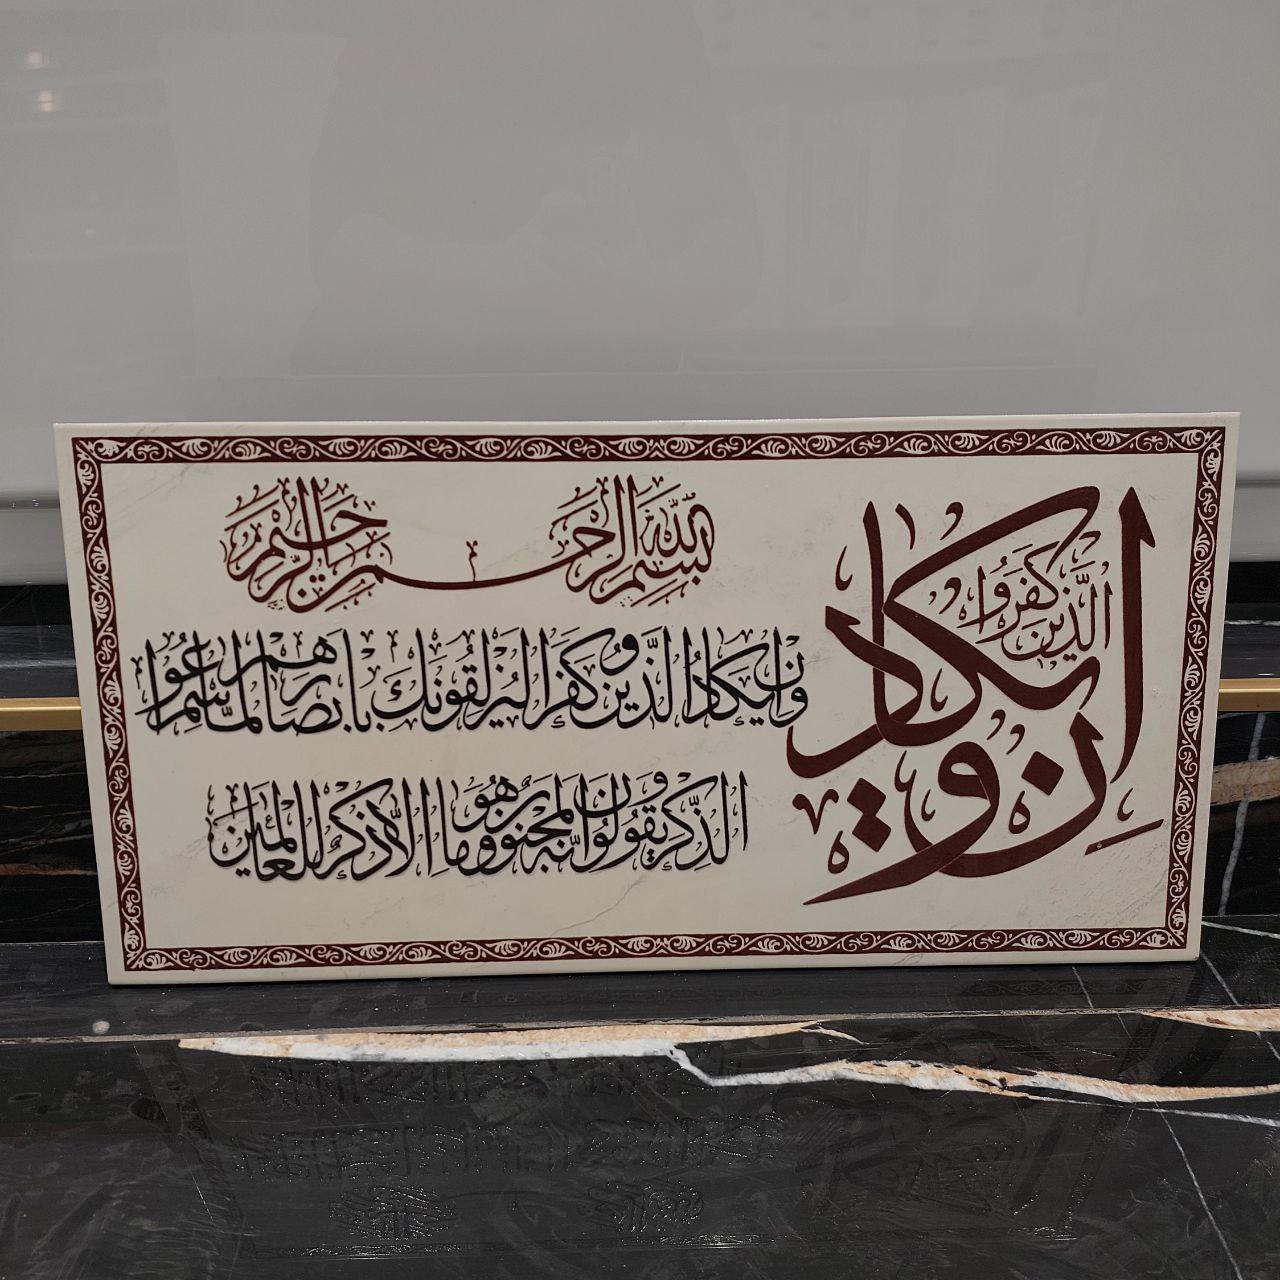 وإن يكاد الذين كفروا
بسم الله الرحمن الرحيم
وَإِن يَكَادُ الَّذِينَ كَفَرُوا لَيُزْلِقُونَكَ بِأَبْصَارِهِمْ لَمَّا سَمِعُوا
الذِّكْرَ وَيَقُولُونَ إِنَّهُ لَمَجْنُونٌ وَمَا هُوَ إِلَّا ذِكْرٌ لِّلْعَالَمِينَ